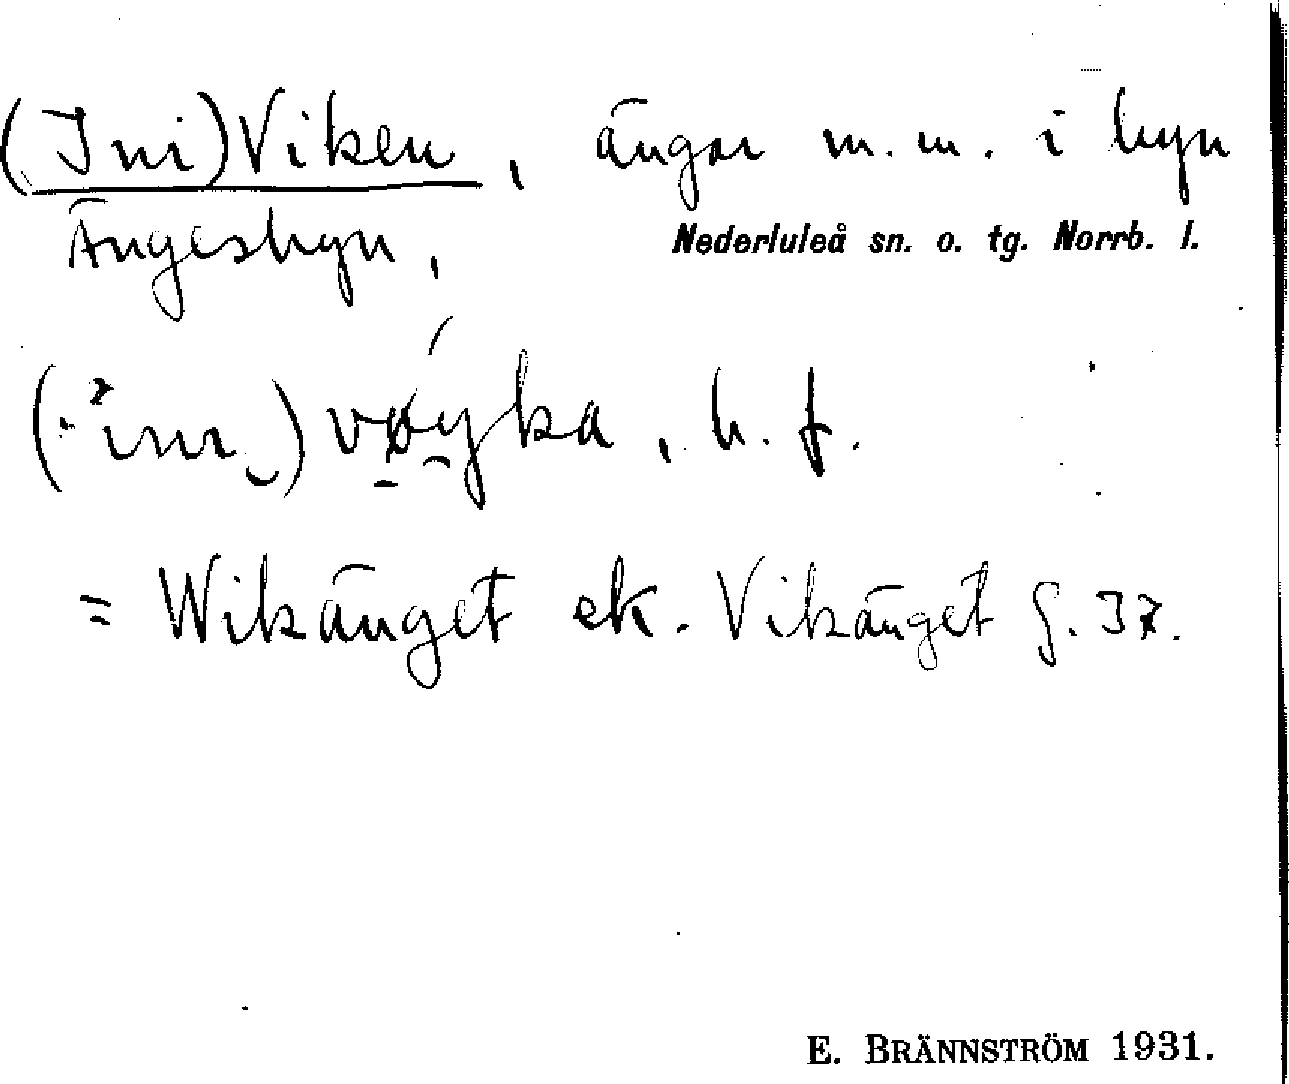 (Ini)Viken, ängar m.m. i byn
Ängesbyn, Nederluleå sn. o. tg. Norrb. l.
vøyka, b. f.
= Wikänget ek. Vikänget g. 37.
E. BRÄNNSTRÖM 1931.